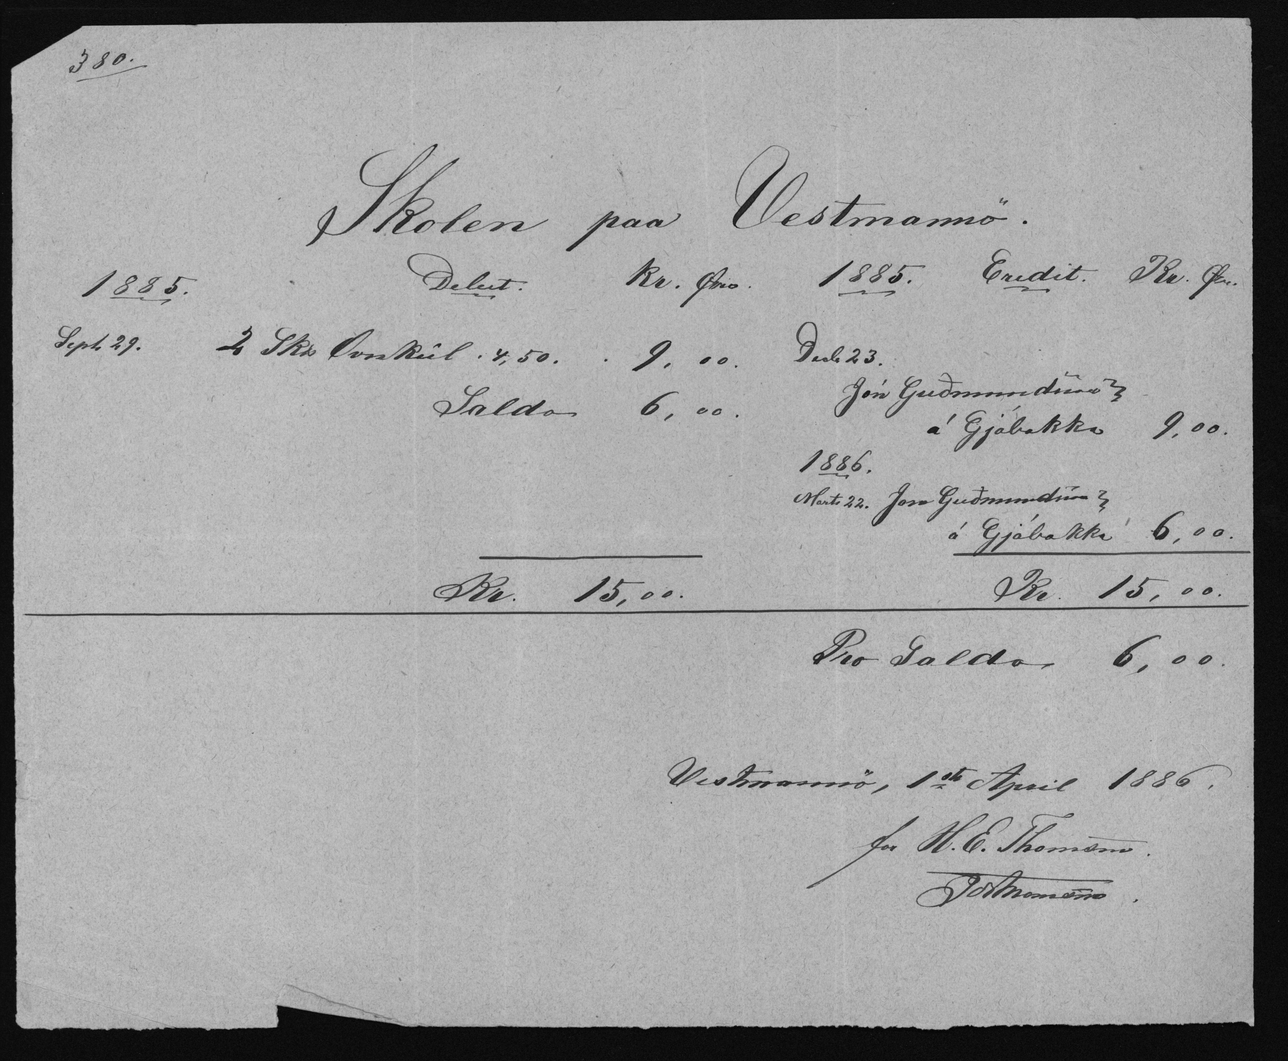 380.
Skolen paa Vestmannö.
1885. Debet. Kr. Øre. 1885. Credit. Kr. Øre.
Sept. 29. 2 Skd Ovnkül . 4,50. . 9, 00. Decb 23.
Saldo 6, 00. Jón Guðmundsson
á Gjábakka 9,00.
1886.
Marts 22. Jón Guðmundsson
á Gjábakka 6,00.
Kr. 15,00. Kr. 15,00.
Pro Saldo 6,00.
Vestmannö, 1ste April 1886.
for H. E. Thomsen.